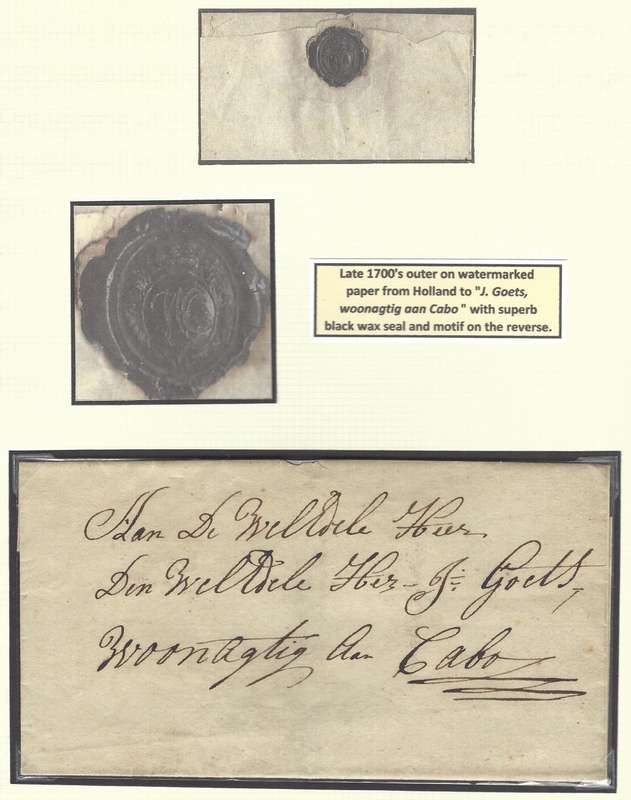 Late 1700's outer on watermarked
paper from Holland to "J. Goets,
woonagtig aan Cabo" with superb
black wax seal and motif on the reverse.
Aan De WelEdele Heer
Den WelEdele Her - J= Goets,
Woonagtig Aan Cabo